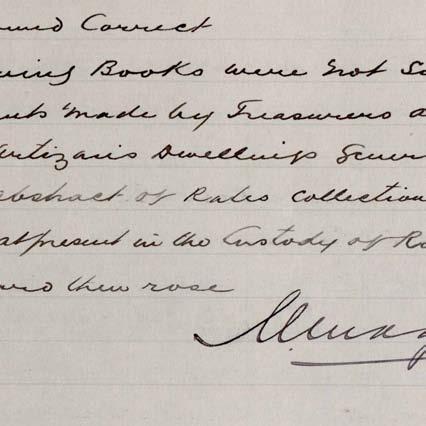 Correct
Books were not
made by Treasurers
Artizans Dwellings
abstract of Rates Collection
at present in the Custody of
then rose